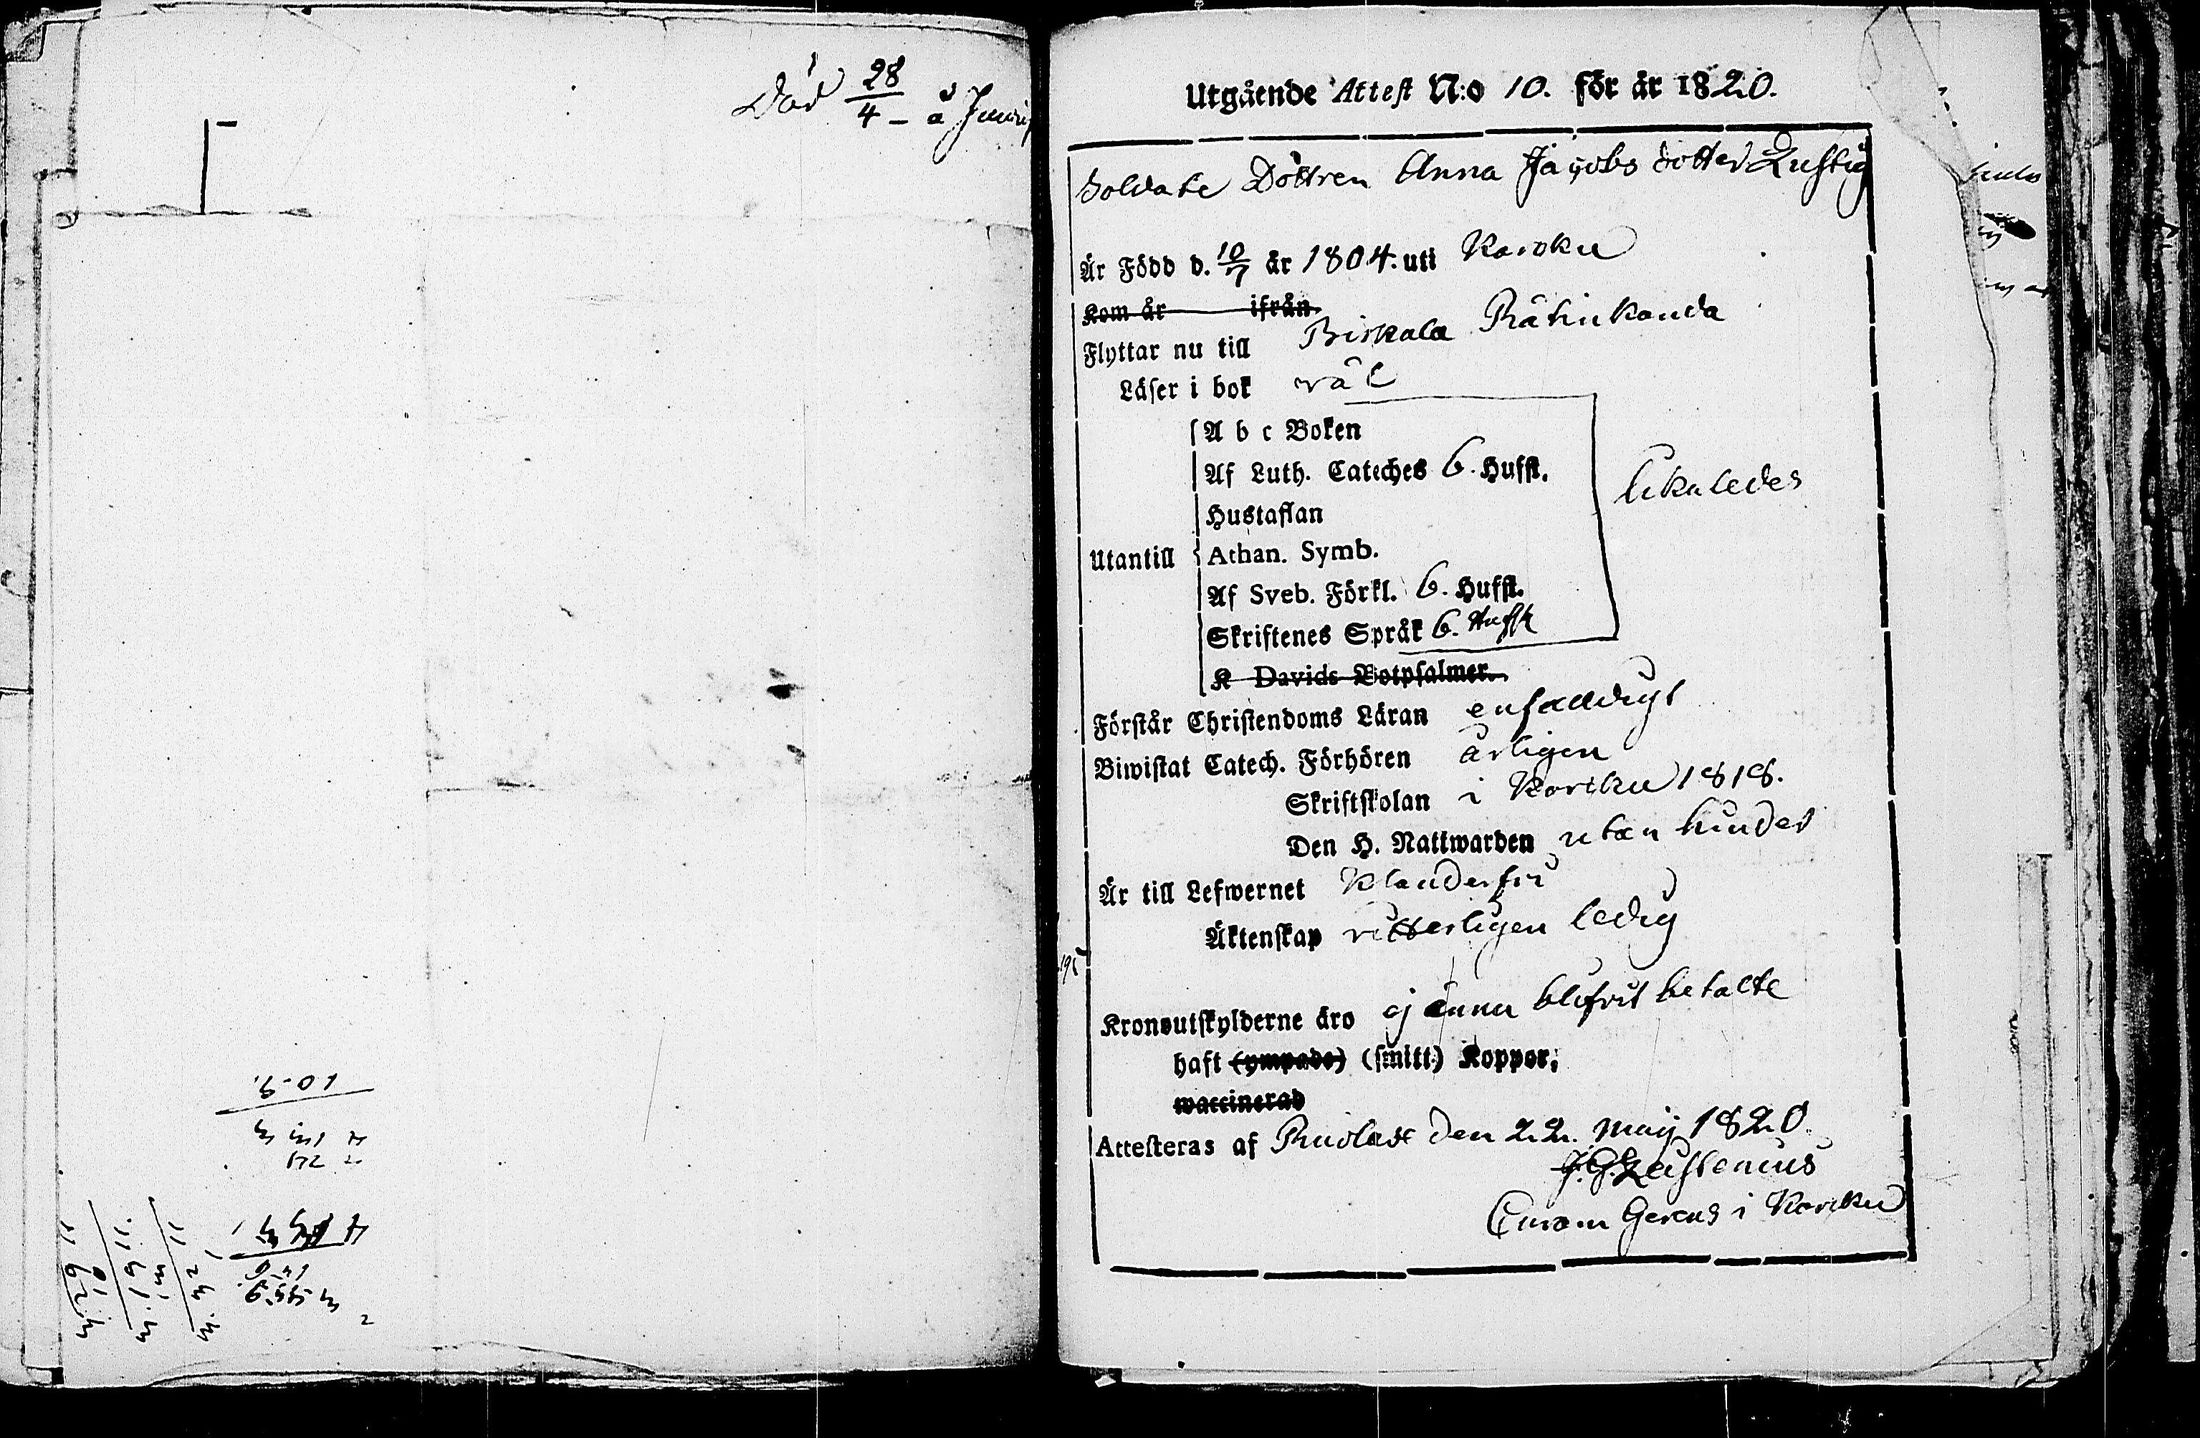 Död 28/4 - å
Utgående Attest N:o 10. för år 1820.
Soldate Döttren Anna Jacobs dotter Lustig
Är Född d. 10/7 år 1804. uti Karcku
Kom år ifrån
Flyttar nu till Birkala Rähinkanda
Läser i bok väl
A b c Boken
Af Luth. Cateches 6. Hufst.
Hustaflan
likaledes
Utantill Athan. Symb.
Af Sveb. Förkl. 6. Hufst.
Skriftenes Språk 6. Hufst
K Davids Botpsalmer.
Förstår Christendoms Läran enfalldigt
Biwistat Catech. Förhören årligen
Skriftskolan i Karcku 1818.
Den H. Nattwarden utan hinder
Är till Lefwernet Klanderfri
Äktenskap witterligen ledig
Kronoutskylderne äro ej ännu blifvit betalte
haft (ympade) (smitt) Koppor,
waccinerad
Attesteras af Prudladt den 22. Maij 1820.
Curam Gerens i Karcku